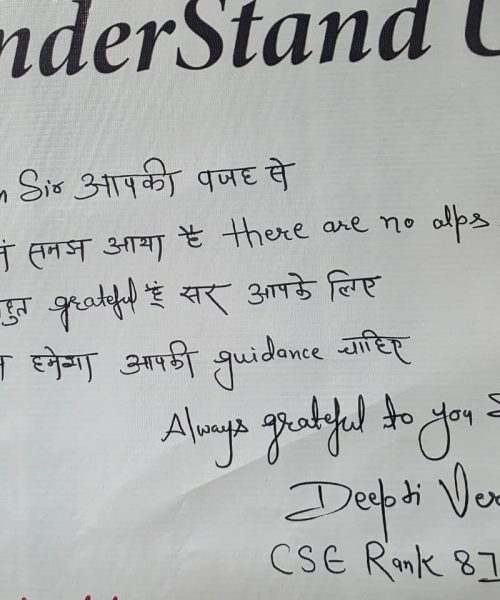 nderStand
Sir आपकी वजह से
समझ आया है there are no alps
grateful हूं सर आपके लिए
हमेशा आपकी guidance चाहिए
Always grateful to you
Deepti Ver
CSE Rank